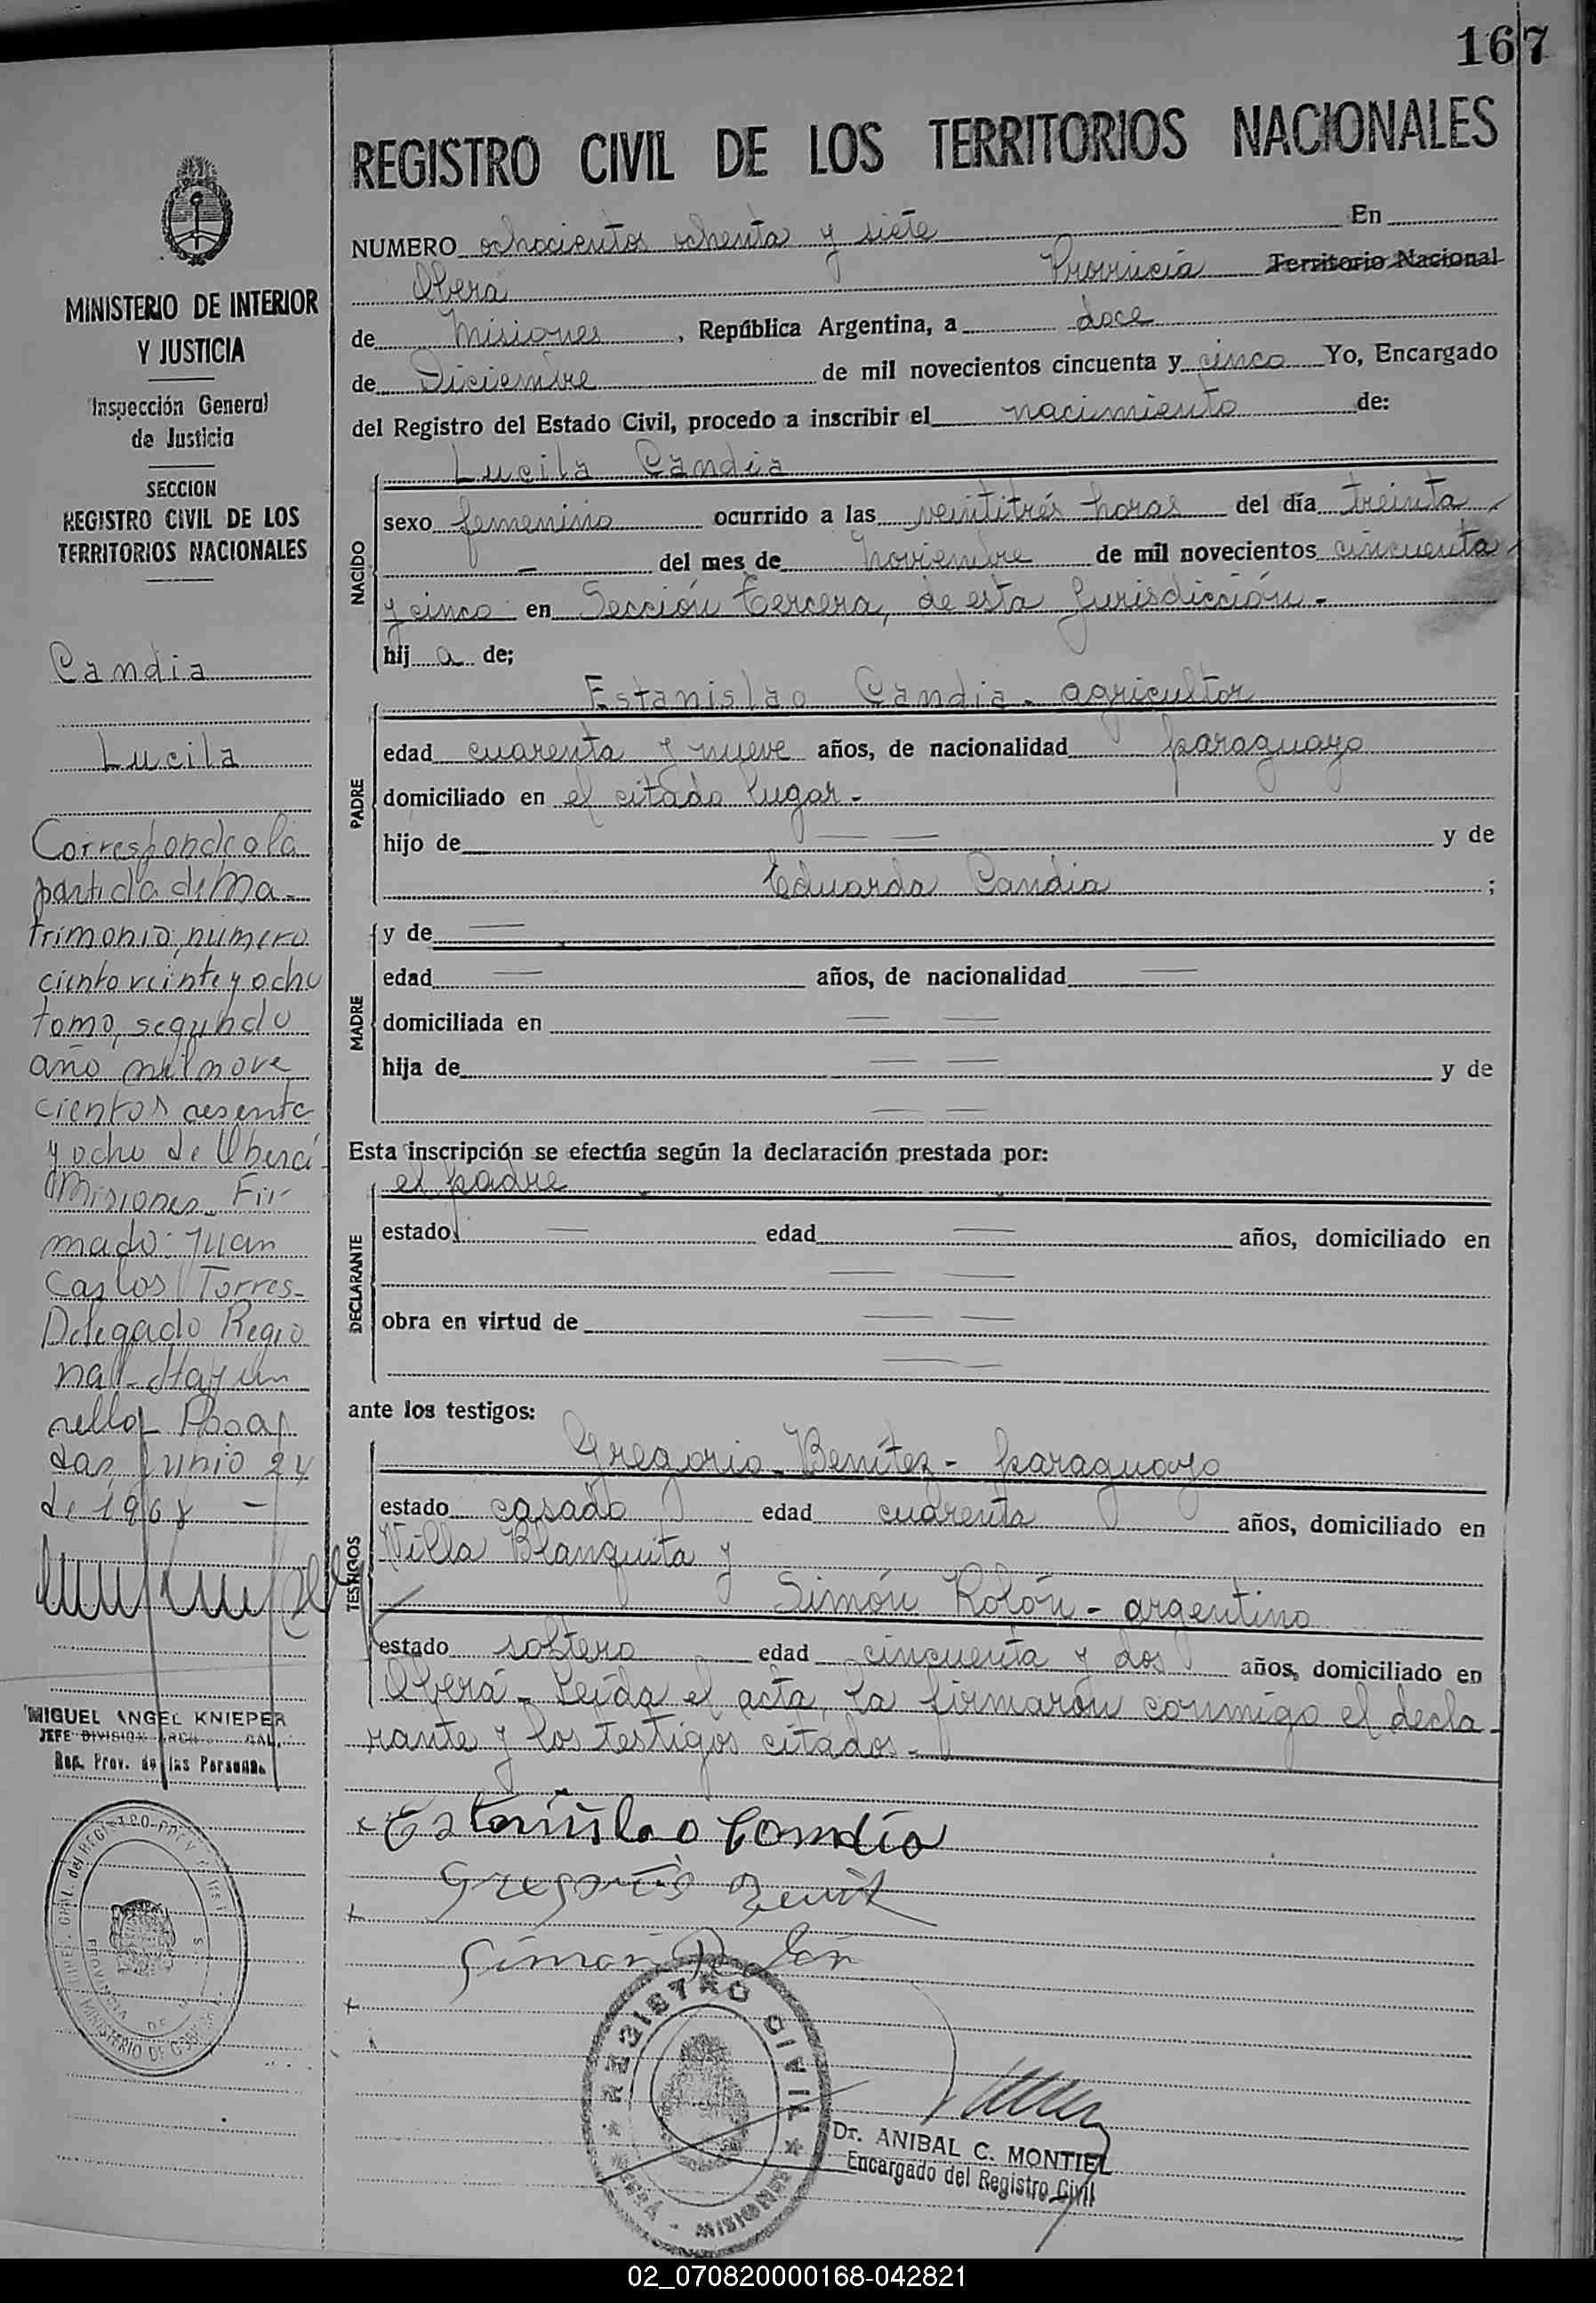 167
REGISTRO CIVIL DE LOS TERRITORIOS NACIONALES
NUMERO ochocientos ochenta y siete En
Oberá Provincia Territorio Nacional
de Misiones, República Argentina, a doce
de Diciembre de mil novecientos cincuenta y cinco Yo, Encargado
del Registro del Estado Civil, procedo a inscribir el nacimiento de:
Lucila Candia
NACIDO
sexo femenino ocurrido a las veintitrés horas del día treinta
- del mes de noviembre de mil novecientos cincuenta
y cinco en Sección tercera, de esta Jurisdicción.-
hij a de;
PADRE
Estanislao Candia - agricultor
edad cuarenta y nueve años, de nacionalidad paraguayo
domiciliado en el citado lugar -
hijo de — — y de
Eduarda Candia ;
MADRE
y de —
edad — años, de nacionalidad —
domiciliada en — —
hija de — — y de
— —
Esta inscripción se efectúa según la declaración prestada por:
el padre
DECLARANTE
estado — edad — años, domiciliado en
— —
obra en virtud de — —
— —
ante los testigos:
TESTIGOS
Gregorio Benítez - paraguayo
estado casado edad cuarenta años, domiciliado en
Villa Blanquita y
Simón Rolón - argentino
estado soltero edad cincuenta y dos años, domiciliado en
Oberá - Leída el acta, la firmaron conmigo el decla-
rante y los testigos citados.-
Estanislao Candia
Gregorio Benit
Simon Rolon
REGISTRO CIVIL
OBERÁ - MISIONES
Dr. ANIBAL C. MONTIEL
Encargado del Registro Civil
MINISTERIO DE INTERIOR
Y JUSTICIA
Inspección General
de Justicia
SECCION
REGISTRO CIVIL DE LOS
TERRITORIOS NACIONALES
Candia
Lucila
Corresponde a la
partida de Ma-
trimonio, numero
ciento veinte y ocho
tomo, segundo
año mil nove
cientos sesenta
y ocho de Oberá
Misiones - Fir-
mado: Juan
Carlos Torres-
Delegado Regio
nal - Hay un
sello Posa
das Junio 24
de 1968 -
MIGUEL ANGEL KNIEPER
JEFE DIVISION
Reg. Prov. de las Personas
MINISTERIO DE
PROVINCIA DE
02_070820000168-042821